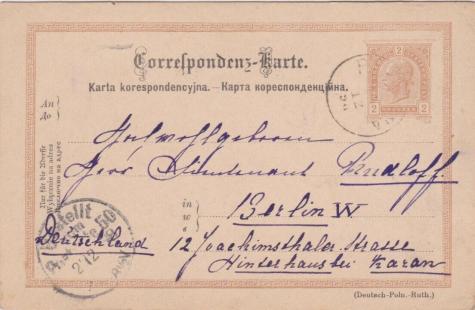 Correspondenz-Karte.
Karta korespondencyjna. – Карта кореспонденційна.
2
2 2
An
До
Nur für die Adresse
Wyłącznie na adres
Hochwohlgeboren
Herr Lieutenant Rudloff.
in
w
в
Berlin W
Deutschland
12 Joachimsthaler Strasse
Hinterhaus bei Karan
Bestellt
50
2/12
(Deutsch-Poln.-Ruth.)